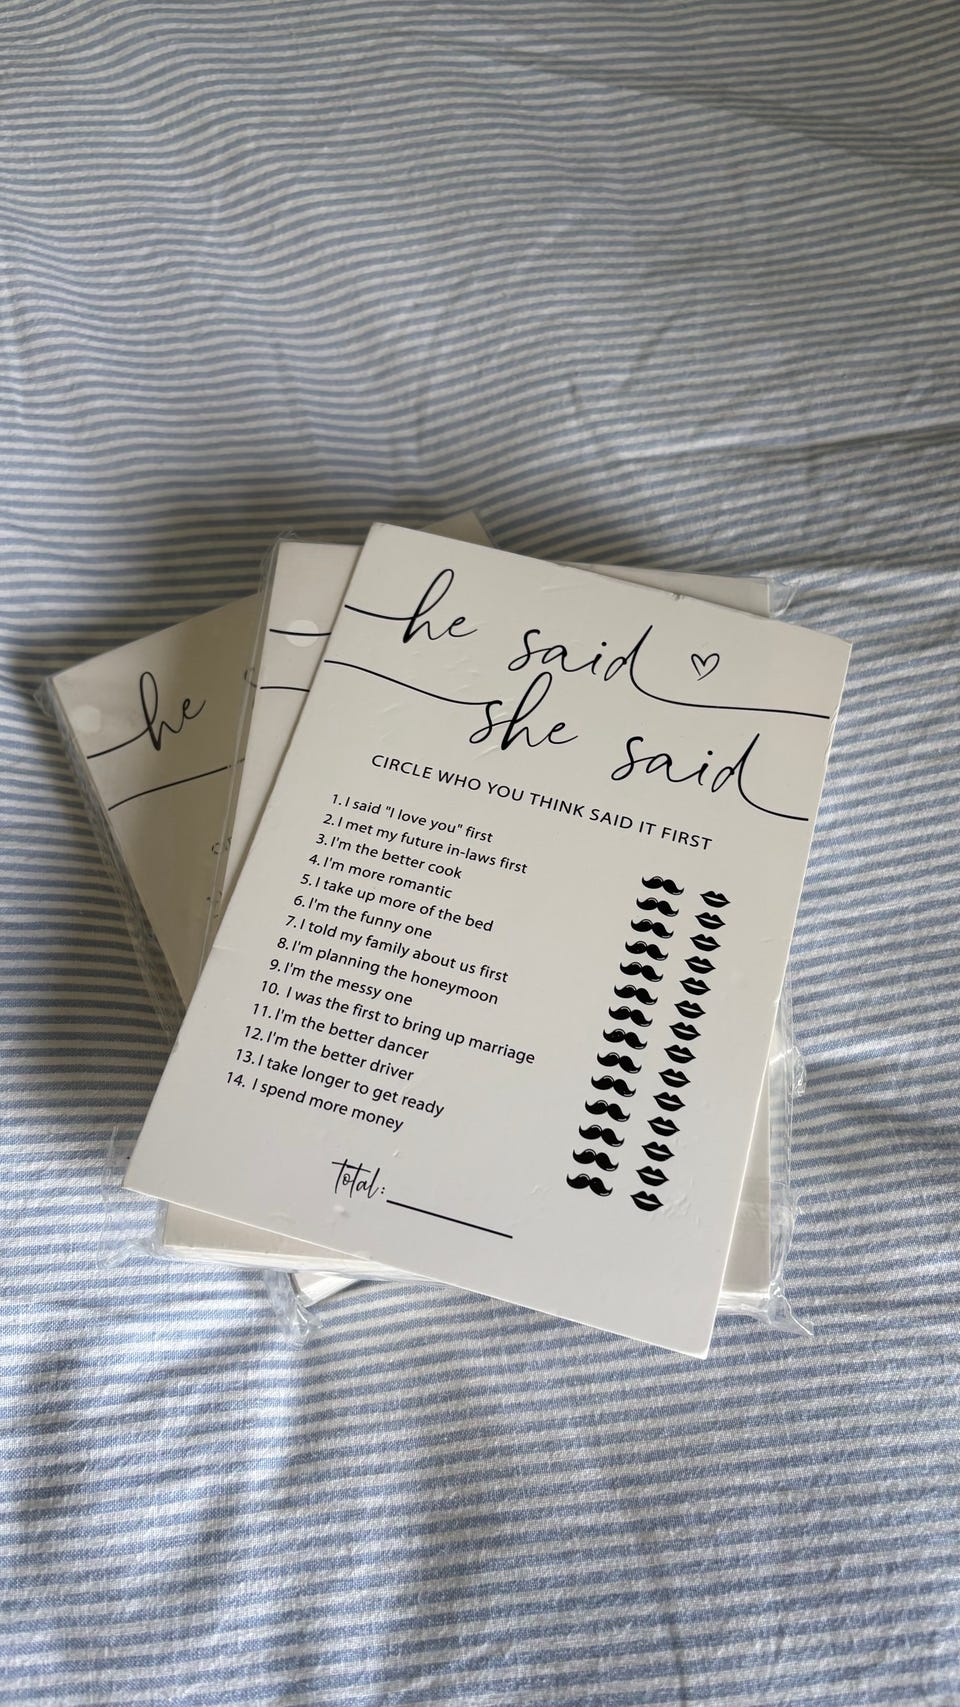 he said
she said
CIRCLE WHO YOU THINK SAID IT FIRST
1. I said "I love you" first
2. I met my future in-laws first
3. I'm the better cook
4. I'm more romantic
5. I take up more of the bed
6. I'm the funny one
7. I told my family about us first
8. I'm planning the honeymoon
9. I'm the messy one
10. I was the first to bring up marriage
11. I'm the better dancer
12. I'm the better driver
13. I take longer to get ready
14. I spend more money
total:
he